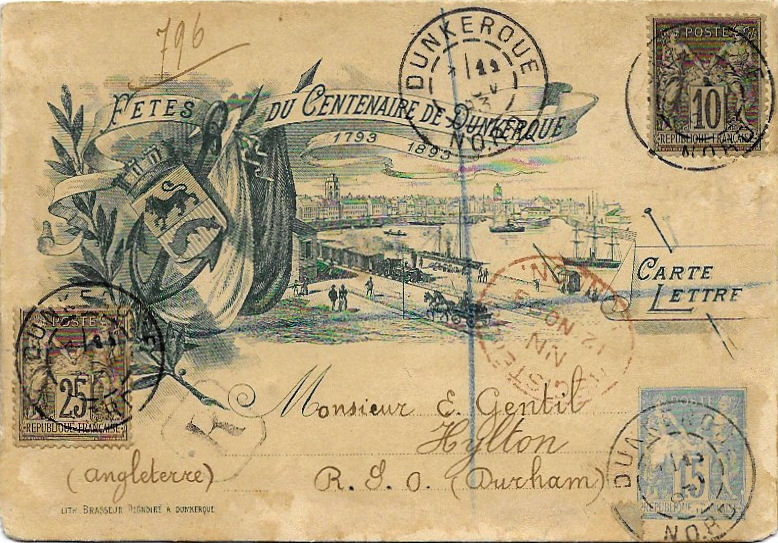 796
FETES DU CENTENAIRE DE DUNKERQUE
1793 1893
DUNKERQUE
NORD
POSTES
10
REPUBLIQUE FRANÇAISE
NORD
CARTE
LETTRE
POSTES
25
REPUBLIQUE FRANÇAISE
DUNKERQUE
R
Monsieur E. Gentil
Hylton
(Angleterre) R. S. O. (Durham)
POSTE
15
DUNKERQUE
NORD
LITH. BRASSEUR DIGNOIRE A DUNKERQUE